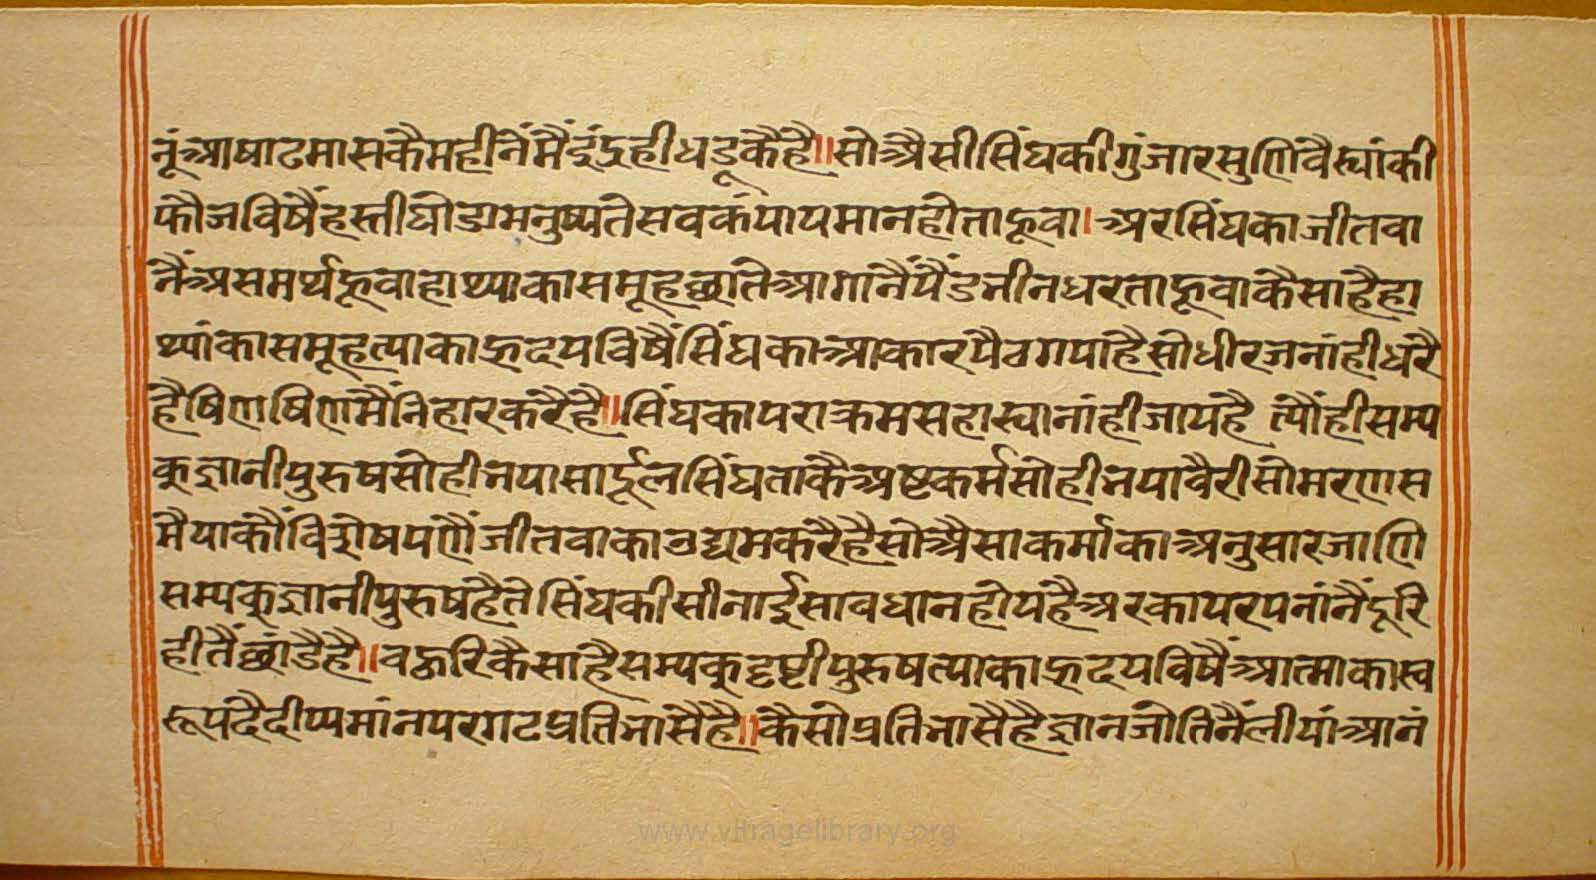 नूंआषाटमासकैमहीनेंमैंइंद्रहीधडूकैहै॥सोअैसीसिंघकीगुंजारसुणिंवैर्यांकी
फौजविषैंहस्तीघोडामनुष्यतेसवकंपायमानहोताहूवा।अरसिंघकाजीतवा
नैंअसमर्थहूवाहाथ्याकासमूहछातेआगानैंपैंडभीनधरताहूवाकैसाहैहा
थ्यांकासमूहत्याकाह्रदयविषैंसिंघकाआकारपैठगयाहैसोधीरजनांहीधरै
हैषिणषिणमैंनिहारकरैंहै॥सिंघकापराक्रमसहार्यानांहीजायहै त्यौंहीसम्य
कज्ञानीपुरुषसोहीभयासार्दूलसिंघताकैअष्टकर्मसोहीभयावैरीसोमरणस
मैयाकौंविशेषपणौंजीतवाकाउद्यमकरैहैसोअैसाकर्माकाअनुसारजाणि
सम्यकज्ञानीपुरुषहैतेसिंघकीसीनाईसावधानहोयहैअरकायरपनांनैंदूरि
हीतैंछांडैहै॥वहुरिकैसाहैसम्यकद्रष्टीपुरुषत्याकाह्रदयविषैंआत्माकास्व
रूपदैदीप्यमांनपरगटप्रतिभासैहै॥कैसोप्रतिभासैहैज्ञानजोतिनैंलीयांआनं
www.vitragelibrary.org